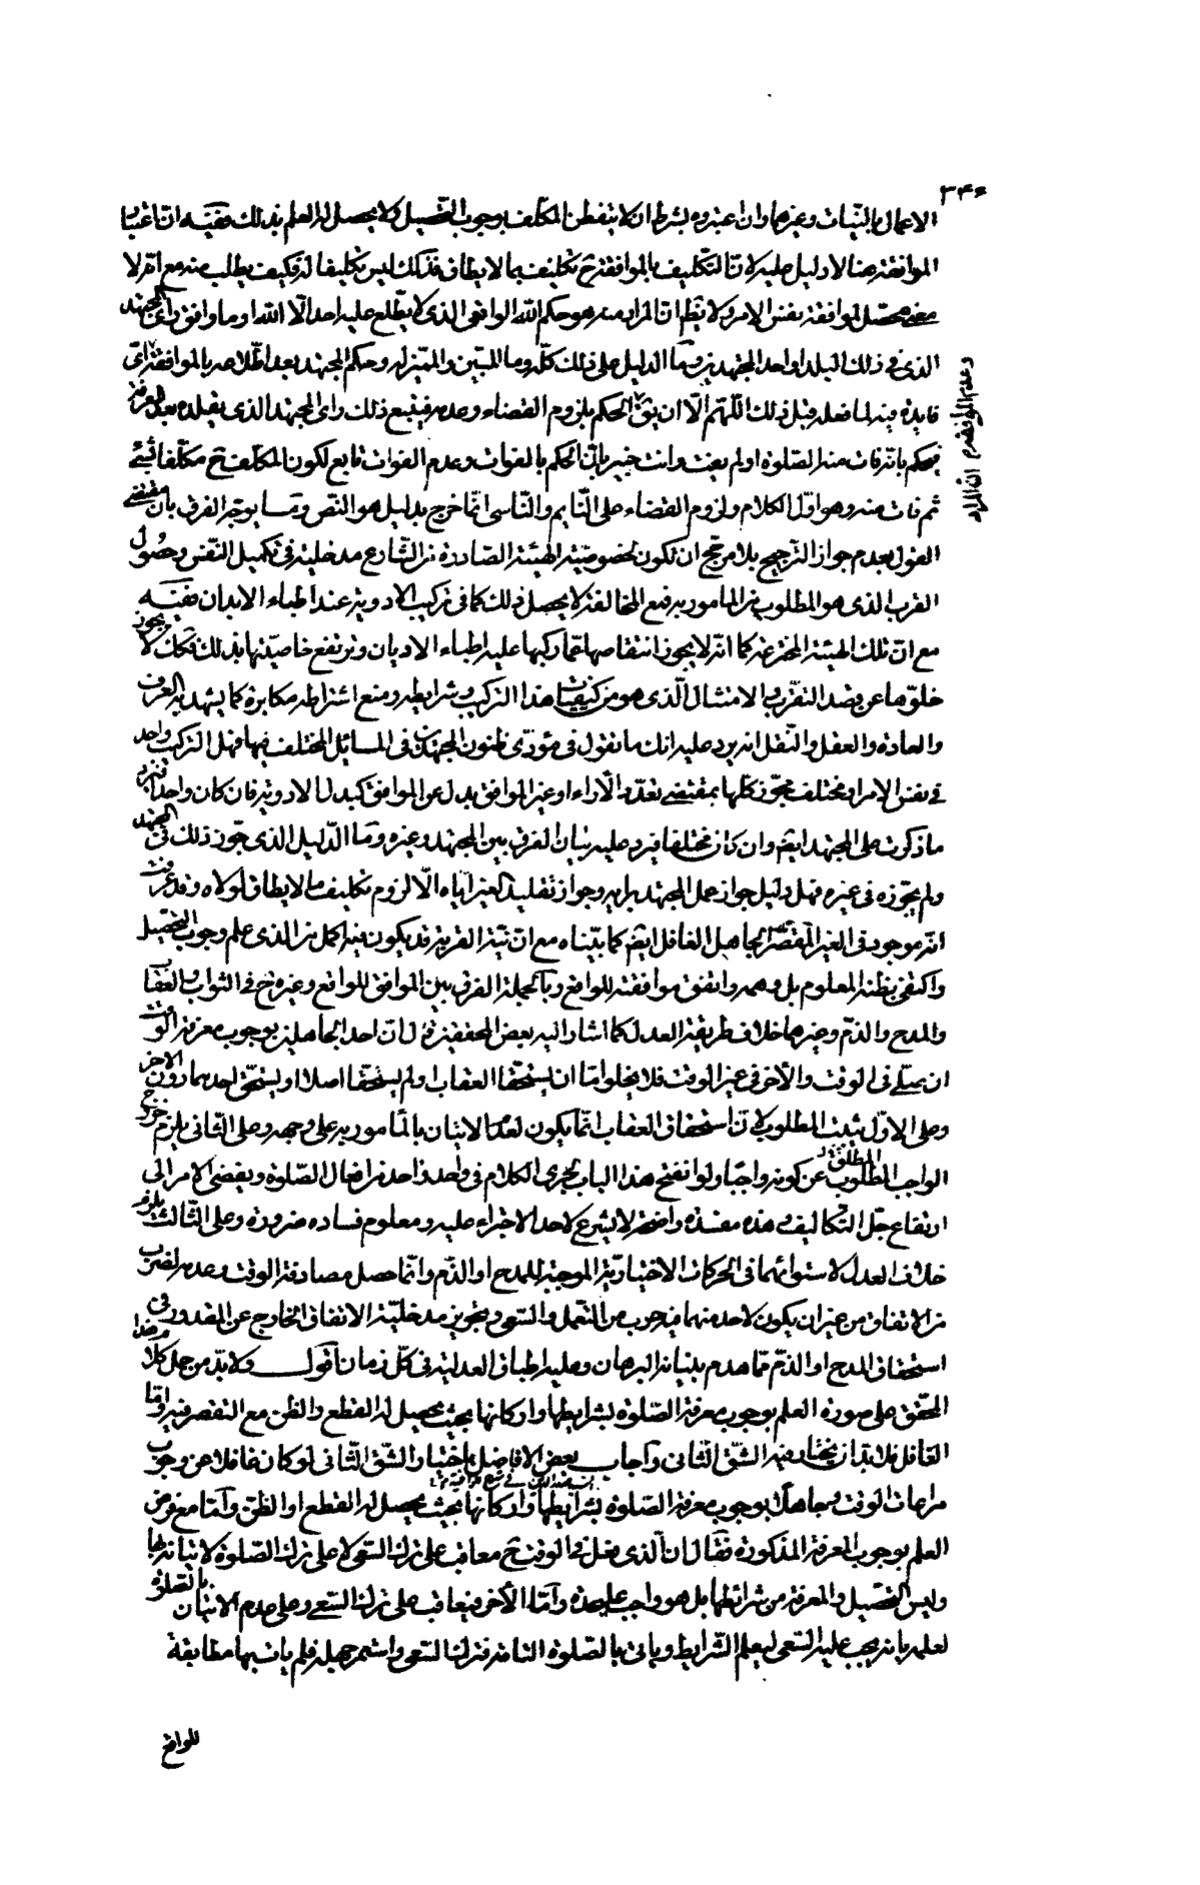 ٣٤٠
الاعمال بالنيّات وغيرها وان اعتبروه بشرط ان لا يتفطن المكلّف بوجوب التحصيل ولا يحصل له العلم بذلك ففيه ان اعتبار
الموافقة هنا لا دليل عليه لانّ التكليف بالموافقة ح تكليف بما لا يطاق فذلك ليس تكليفا له فكيف يطلب منه مع انّه لا
معنى محصّل لموافقة نفس الامر ولا يظهر انّ المراد منه هو حكم الله الواقعى الذى لا يطّلع عليه احد الّا الله او ما وافق راى المجتهد
الذى فى ذلك البلد او احد المجتهدين وما الدليل على ذلك كلّه وما المبيّن والمميّز له وحكم المجتهد بعد اطلاعه بالموافقة اىّ
فايدة فيه لما فعله قبل ذلك اللّهمّ الّا ان يقال الحكم بلزوم القضاء وعدمه فيتبع ذلك راى المجتهد الذى يقلده بعد المعرفة
فيحكم بانه فات منه الصّلوة او لم يفت وانت خبير بانّ الحكم بالفوات وعدم الفوات تابع لكون المكلّف ح مكلّفا بشئ
ثم فات منه وهو اوّل الكلام ولزوم القضاء على النّايم والنّاسى انّما خرج بدليل هو النّص وممّا يوجّه الفرق بان مقتضى
القول بعدم جواز الترجيح بلا مرجّح ان تكون لخصوصيّة الهيئة الصّادرة من الشّارع مدخلية فى تكميل النّفس وحصول
القرب الذى هو المطلوب من المامور به فمع المخالفة لا يحصل ذلك كما فى تركيب الادوية عند اطباء الابدان ففيه
مع انّ تلك الهيئة المخترعة كما انّه لا يجوز انتقاصها عمّا ركبها عليه اطباء الاديان وترتفع خاصيّتها بذلك فكذلك لا يجوز
خلوّها عن قصد التقرّب والامتثال الّذى هو من كيفيّات هذا التركيب وشرايطه ومنع اشتراطه مكابرة كما يشهد به العرف
والعادة والعقل والنّقل انه يرد عليه انك ما تقول فى مؤدّى ظنون المجتهدين فى المسائل المختلف فيها فهل التركيب واحد
فى نفس الامر او مختلف تجوّز كلّها بمقتضى تعدّد الآراء او غير الموافق بدل عن الموافق كبدل الادوية فان كان واحدا فيرد
ما ذكرت على المجتهد ايضا وان كان مختلفا فيرد عليه بيان الفرق بين المجتهد وغيره وما الدّليل الذى جوّز ذلك فى المجتهد
ولم يجوّزه فى غيره فهل دليل جواز عمل المجتهد برايه وجواز تقليد الغير ايّاه الّا لزوم تكليف ما لا يطاق لولاه وقد عرفت
انّه موجود فى الغير المقصّر الجاهل الغافل ايضا كما بيّناه مع انّ نيّة القربة قد يكون فيه اكمل من الذى علم وجوب التحصيل
واكتفى بظنه المعلوم بل وهمه واتفق موافقته للواقع وبالجملة الفرق بين الموافق للواقع وغيره ح فى الثواب والعقاب
والمدح والذّم وغيرها خلاف طريقة العدل كما اشار اليه بعض المحققين من انّ احد الجاهلين بوجوب معرفة الوقت
ان يصلّى فى الوقت والآخر فى غير الوقت فلا يخلو امّا ان يستحقّا العقاب او لم يستحقا اصلا او يستحق احدهما دون الآخر
وعلى الاوّل يثبت المطلوب لانّ استحقاق العقاب انّما يكون لعدم الاتيان بالمأمور به على وجهه وعلى الثانى يلزم خروج
الواجب المطلق عن كونه واجبا ولو انفتح هذا الباب لجرى الكلام فى واحد واحد من افعال الصّلوة ويفضى الامر الى
ارتفاع جلّ التكاليف وهذه مفسدة واضحة لا يشرع لاحد الاجتراء عليه ومعلوم فساده ضرورة وعلى الثّالث يلزم
خلاف العدل لاستوائهما فى الحركات الاختياريّة الموجبة للمدح او الذّم وانّما حصل مصادفة الوقت وعدمه لضرب
من الاتفاق من غير ان يكون لاحد منهما فيه ضرب من التعمّل والسّعى وتجويز مدخليّة الاتفاق الخارج عن المقدور فى
استحقاق المدح او الذّم مما هدم بنيانه البرهان وعليه اطباق العدلية فى كلّ زمان اقول ولا بدّ من حمل كلام هذا
المحقّق على صورة العلم بوجوب معرفة الصّلوة بشرايطها واركانها بحيث يحصل له القطع والظن مع التقصير فيه وامّا
الغافل فلا بدّ ان يختار فيه الشّق الثّانى واجاب بعض الافاضل باختيار الشّق الثّانى لو كان غافلا عن وجوب
مراعات الوقت وجاهلا بوجوب معرفة الصّلوة بشرايطها واركانها بحيث يحصل له القطع او الظنّ وامّا مع فرض
العلم بوجوب المعرفة المذكورة فقال انّ الّذى صلّى فى الوقت ح معاقب على ترك السّعى لا على ترك الصّلوة لاتيانه بها
وليس التحصيل والمعرفة من شرائطها بل هو واجب عليحدة وامّا الآخر فيعاقب على ترك السّعى وعلى عدم الاتيان بالصّلوة
لعلمه بانه يجب عليه السّعى ليعلم الشّرايط ويأتى بالصّلوة التامّة فترك السّعى واستمر جهله فلم يات بها مطابقة
للواقع